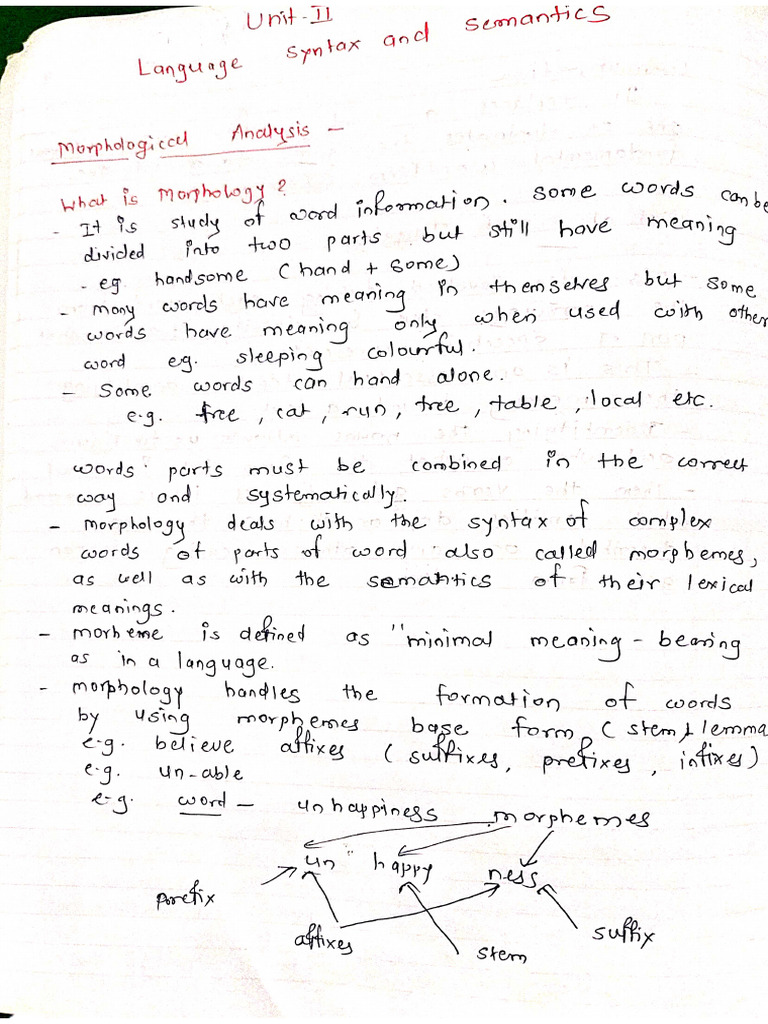 Unit-II
Language Syntax and Semantics
Morphological Analysis -
What is Morphology?
- It is study of word information. Some words can be
divided into two parts but still have meaning
- eg. handsome (hand + some)
- many words have meaning in themselves but some
words have meaning only when used with other
word eg. sleeping colourful.
- Some words can hand alone.
e.g. free, cat, run, tree, table, local etc.
words parts must be combined in the correct
way and systematically.
- morphology deals with the syntax of complex
words of parts of word also called morphemes,
as well as with the semantics of their lexical
meanings.
- morheme is defined as "minimal meaning-bearing
as in a language.
- morphology handles the formation of words
by using morphemes base form (stem, lemma
e.g. believe affixes (suffixes, prefixes, infixes)
e.g. un-able
e-g. word - unhappiness morphemes
un" happy ness
prefix
affixes stem suffix